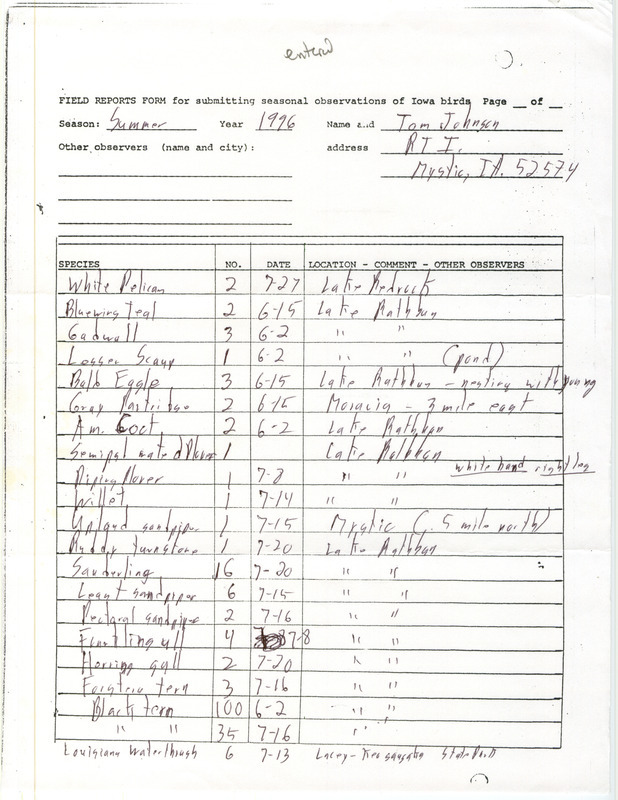 entered
FIELD REPORTS FORM for submitting seasonal observations of Iowa birds Page __ of __
Season: Summer Year 1996 Name and Tom Johnson
Other observers (name and city): address RT 1.
Mystic, IA. 52574
SPECIES NO. DATE LOCATION - COMMENT - OTHER OBSERVERS
White Pelican 2 7-27 Lake Redrock
Bluewing Teal 2 6-15 Lake Rathbun
Gadwall 3 6-2 " "
Lesser Scaup 1 6-2 " " (pond)
Bald Eagle 3 6-15 Lake Rathbun - nesting with young
Gray Partridge 2 6-15 Moravia - 3 mile east
Am. Coot 2 6-2 Lake Rathbun
Semipalmated Plover 1 Lake Rathbun
Piping Plover 1 7-8 " " white band right leg
Willet 1 7-14 " "
Upland sandpiper 1 7-15 Mystic (.5 mile north)
Ruddy turnstone 1 7-20 Lake Rathbun
Sanderling 16 7-20 " "
Least sandpiper 6 7-15 " "
Pectoral sandpiper 2 7-16 " "
4 7-8 " "
Herring gull 2 7-20 " "
Forsters tern 3 7-16 " "
Black tern 100 6-2 " "
" " 35 7-16 " "
Louisiana Waterthrush 6 7-13 Lacey-Keosauqua State Park